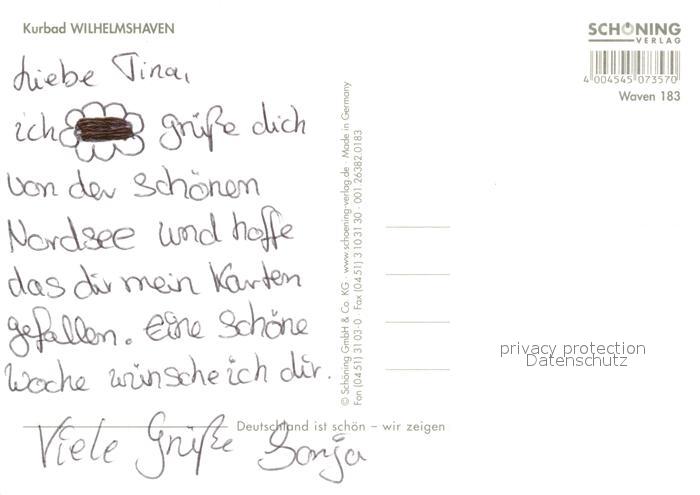 Kurbad WILHELMSHAVEN
SCHÖNING
VERLAG
4 004545 073570
Waven 183
Liebe Tina,
ich grüße dich
von der schönen
Nordsee und hoffe
das dir mein Karten
gefallen. Eine schöne
Woche wünsche ich dir.
Viele Grüße Sonja
© Schöning GmbH & Co. KG · www.schoening-verlag.de · Made in Germany
Fon (04 51) 31 03-0 · Fax (04 51) 3 10 31 30 · 001.26382.0183
Deutschland ist schön – wir zeigen
privacy protection
Datenschutz